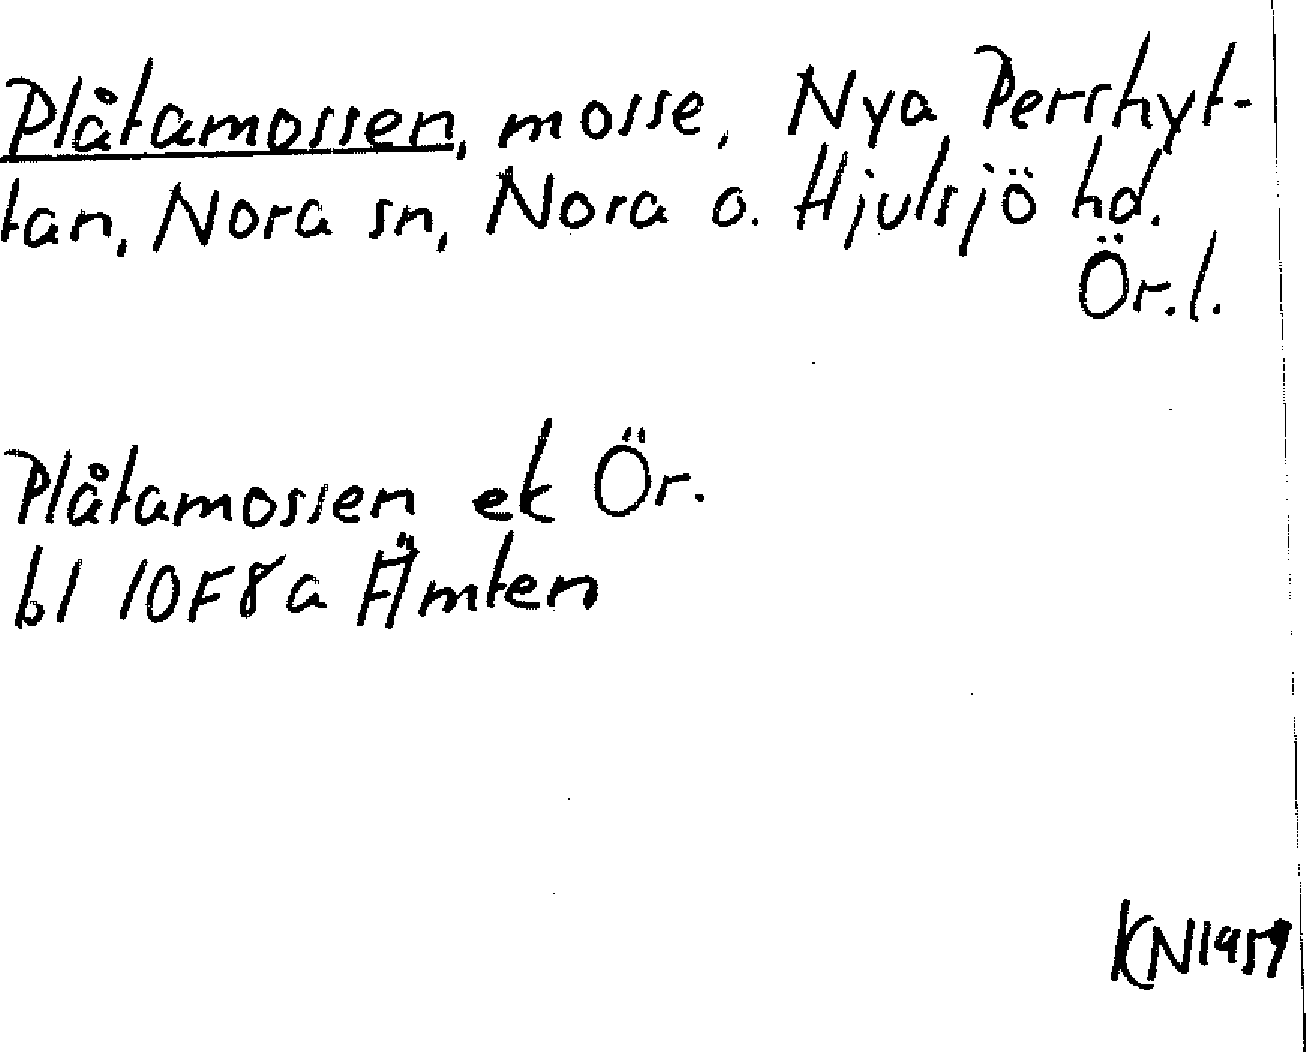 Plåtamossen, mosse, Nya Pershyt-
tan, Nora sn, Nora o. Hjulsjö hd.
Ör. l.
Plåtamossen ek Ör.
bl 10F8a Ämten
KN 1959